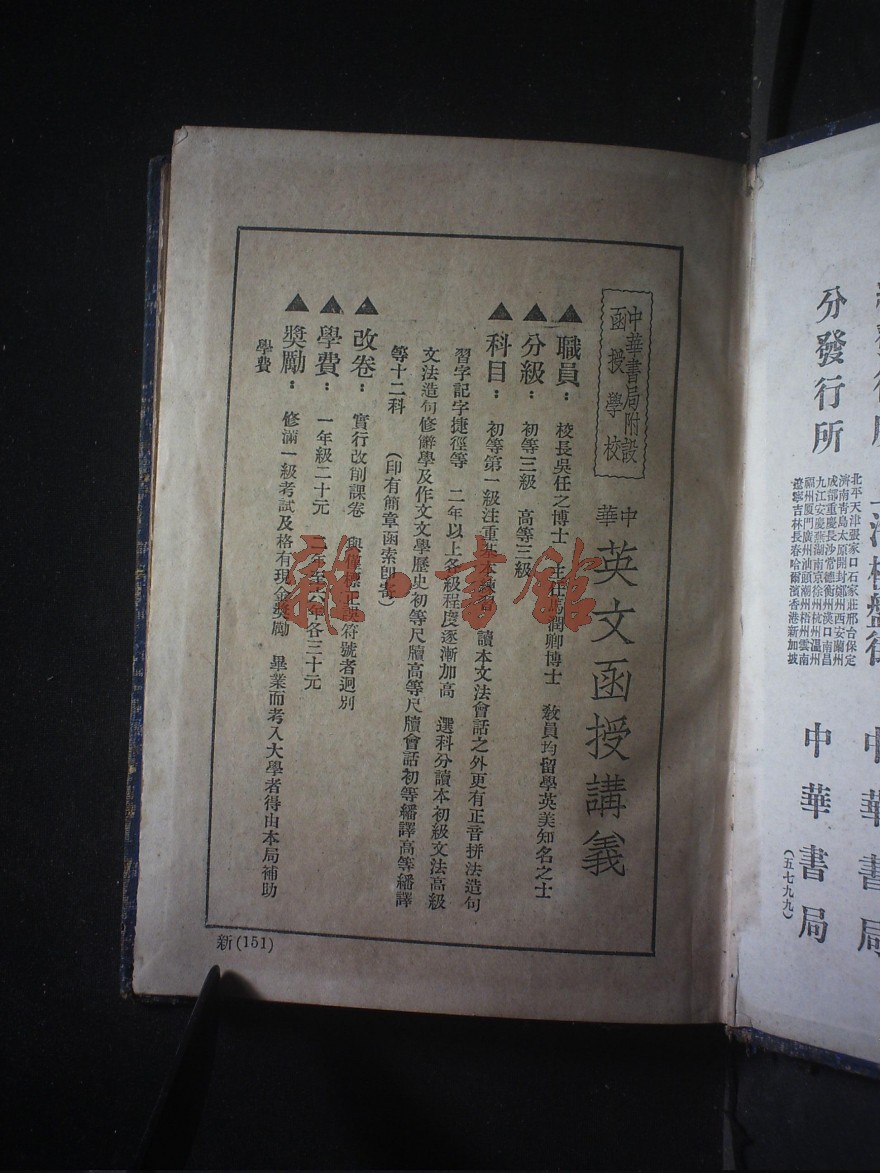 發行所 上海棋盤街 中華書局
分發行所
北平天津張家口石家莊邢台保定
濟南青島太原開封鄭州西安蘭州
成都重慶長沙常德衡州漢口南昌
九江安慶蕪湖南京徐州杭州溫州
福州厦門廣州汕頭潮州梧州雲南
遼寧吉林長春哈爾濱香港新加坡
中華書局
(五七九九)
中華書局附設
函授學校
中華
英文函授講義
▲職員： 校長吳任之博士 主任馬潤卿博士 敎員均留學英美知名之士
▲分級： 初等三級 高等三級
▲科目： 初等第一級注重基本練習 讀本文法會話之外更有正音拼法造句
習字記字捷徑等 二年以上各級程度逐漸加高 選科分讀本初級文法高級
文法造句修辭學及作文文學歷史初等尺牘高等尺牘會話初等繙譯高等繙譯
等十二科 (印有簡章函索卽寄)
▲改卷： 實行改削課卷 與僅標正誤符號者迥別
▲學費： 一年級二十元 二年至六年各三十元
▲獎勵： 修滿一級考試及格有現金獎勵 畢業而考入大學者得由本局補助
學費
新(151)
雜·書館